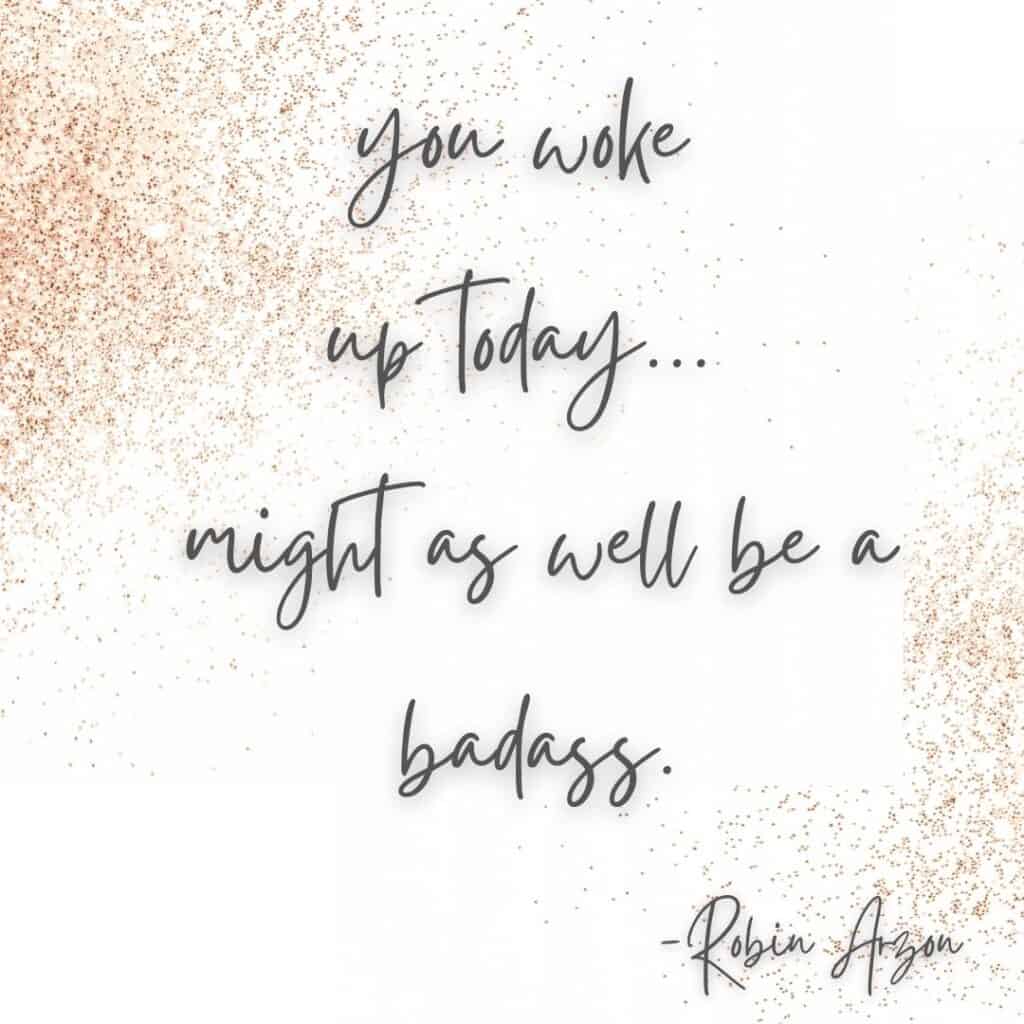 you woke
up today...
might as well be a
badass.
-Robin Arzon